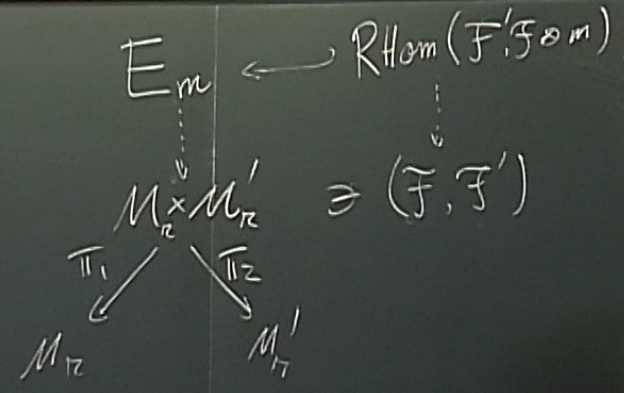 E_m ← RHom(F', F⊗m)
M_r × M'_r ∋ (F, F')
π_1 π_2
M_r M'_r